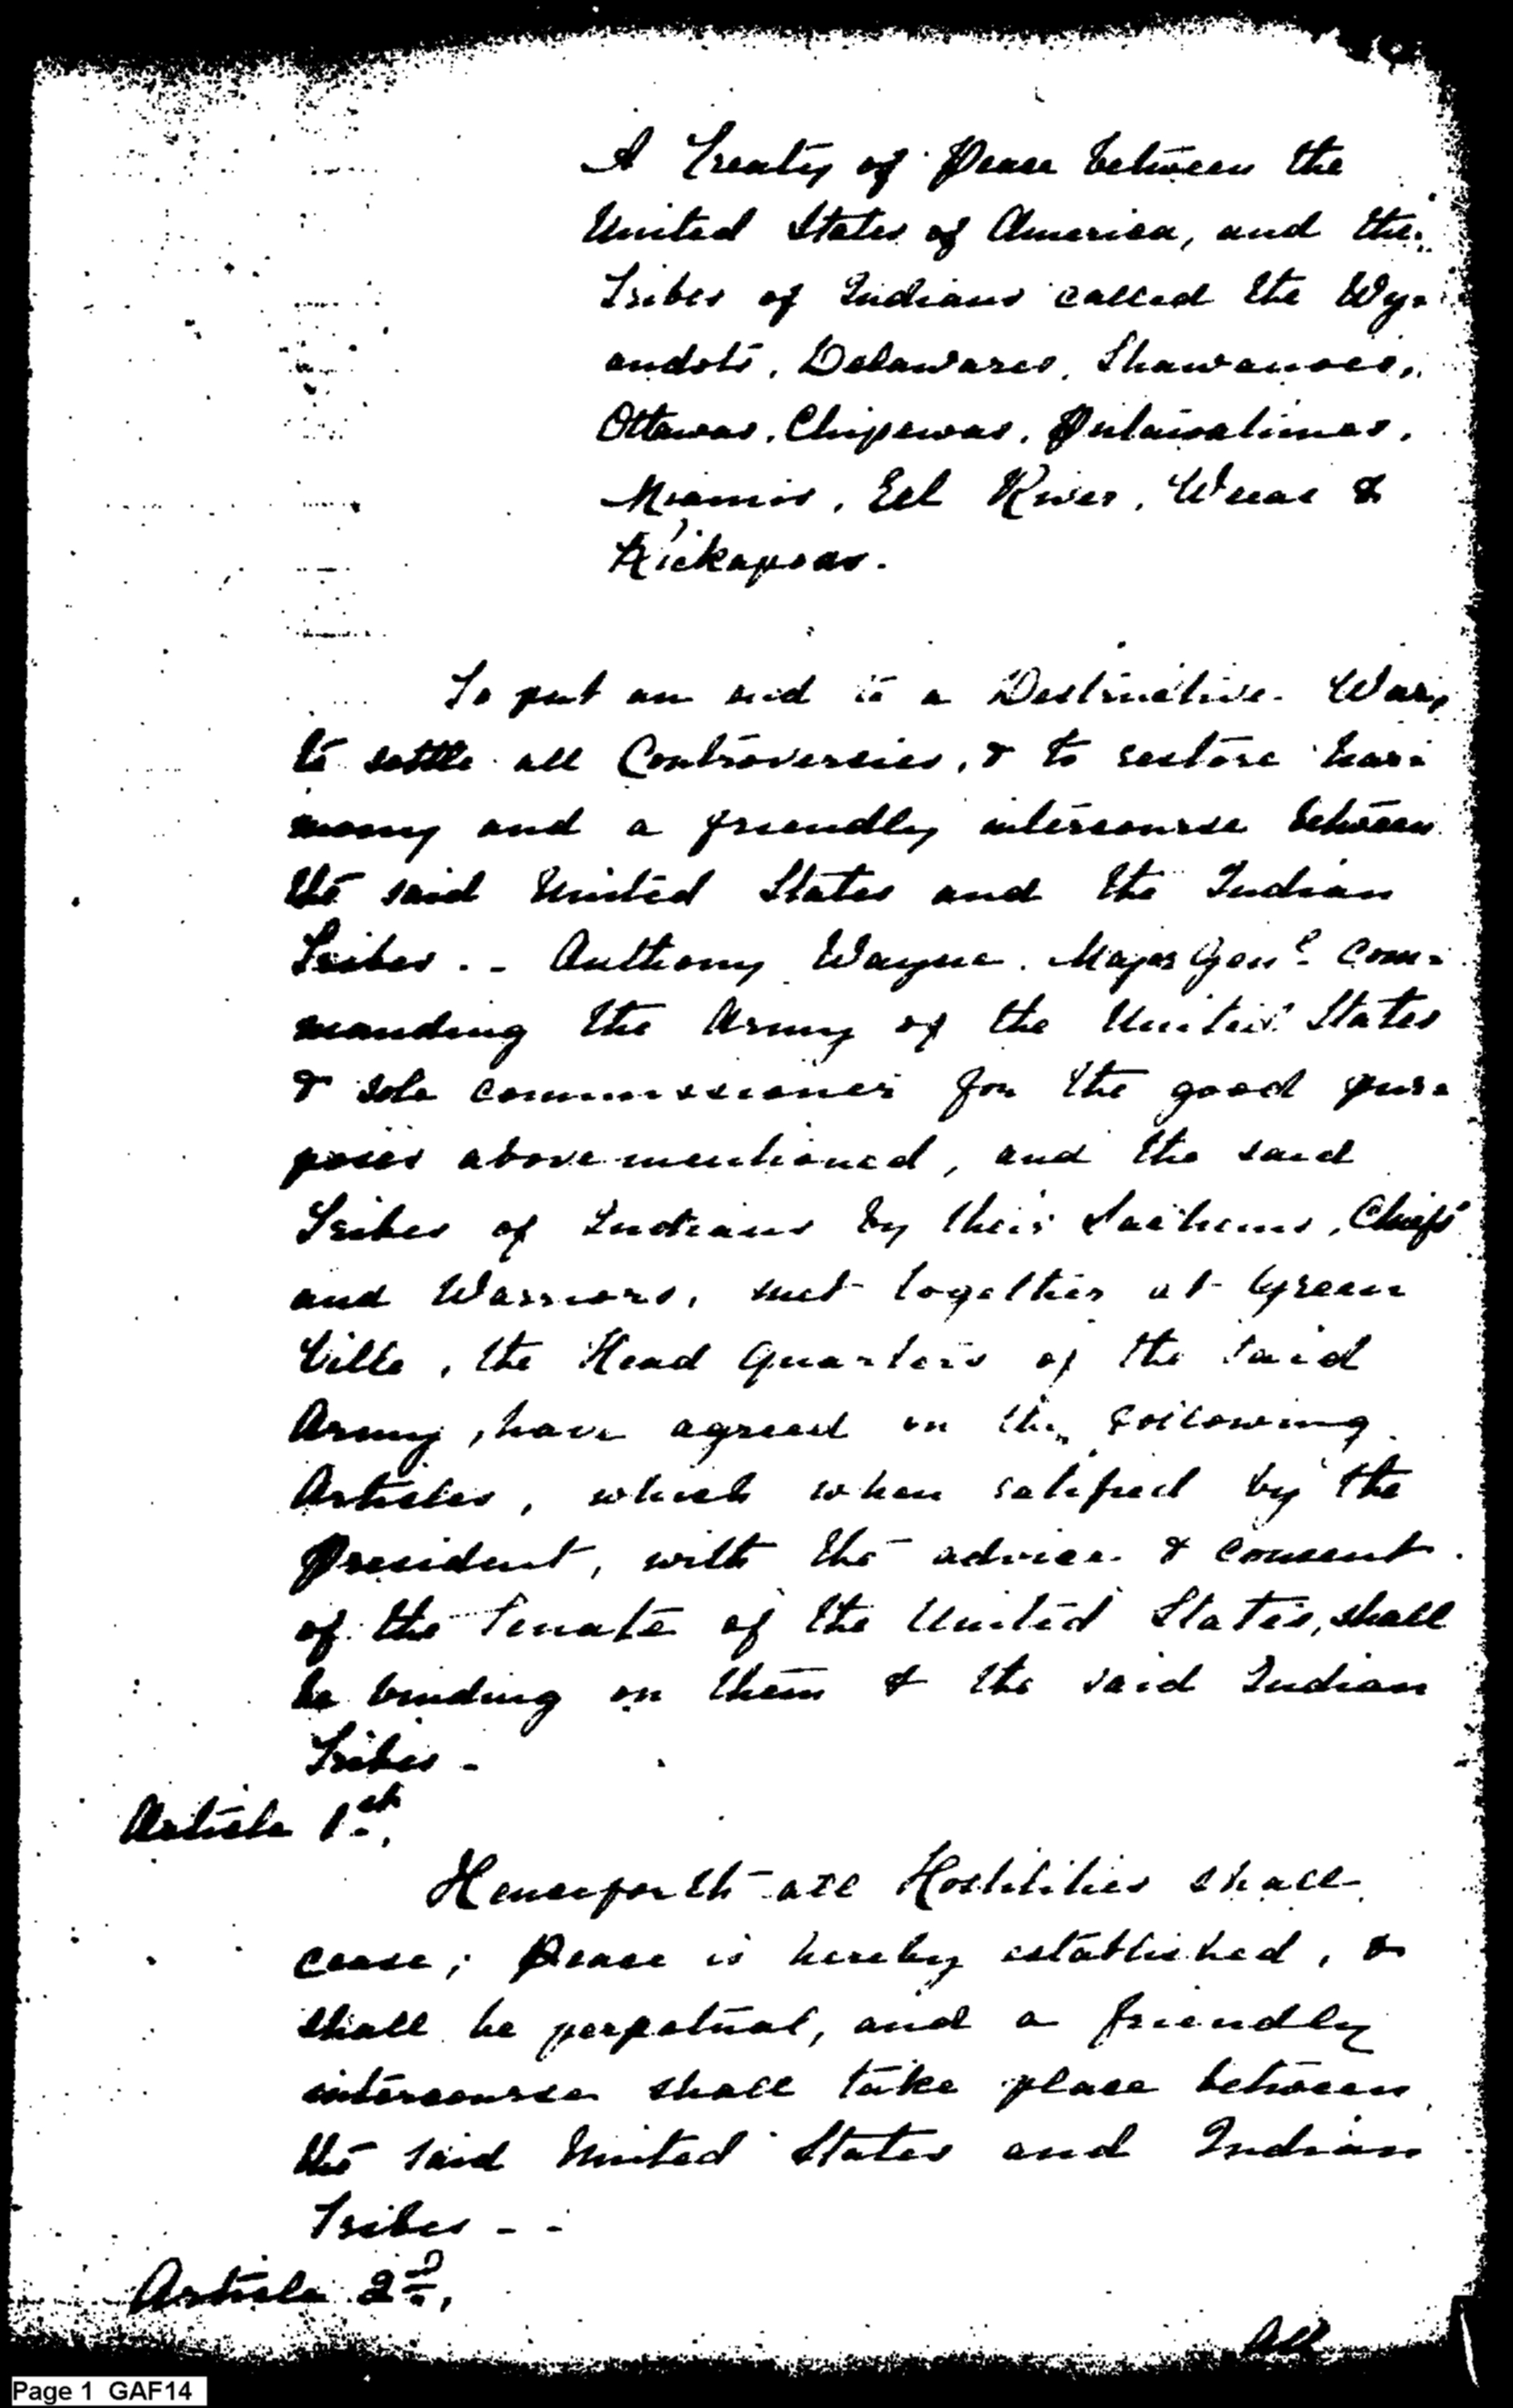 A Treaty of Peace between the
United States of America, and the
Tribes of Indians called the Wy=
andots, Delawares, Shawanoes,
Ottawas, Chipewas, Putawatimes,
Miamis, Eel River, Weeas &
Kickapoos.
To put an end to a Destructive War,
to settle all Controversies, & to restore har=
mony and a friendly intercourse between
the said United States and the Indian
Tribes. - Anthony Wayne, Major Genl. Com=
manding the Army of the United States
& sole commissioner for the good pur=
poses above mentioned, and the said
Tribes of Indians by their Sachems, Chiefs
and Warriors, met together at Green
Ville, the Head Quarters of the said
Army, have agreed on the following
Articles, which when ratified by the
President, with the advice & consent
of the Senate of the United States, shall
be binding on them & the said Indian
Tribes -
Article 1st.
Henceforth all Hostilities shall
cease; Peace is hereby established, &
shall be perpetual, and a friendly
intercourse shall take place between
the said United States and Indian
Tribes - -
Article 2d.,
All
Page 1 GAF14